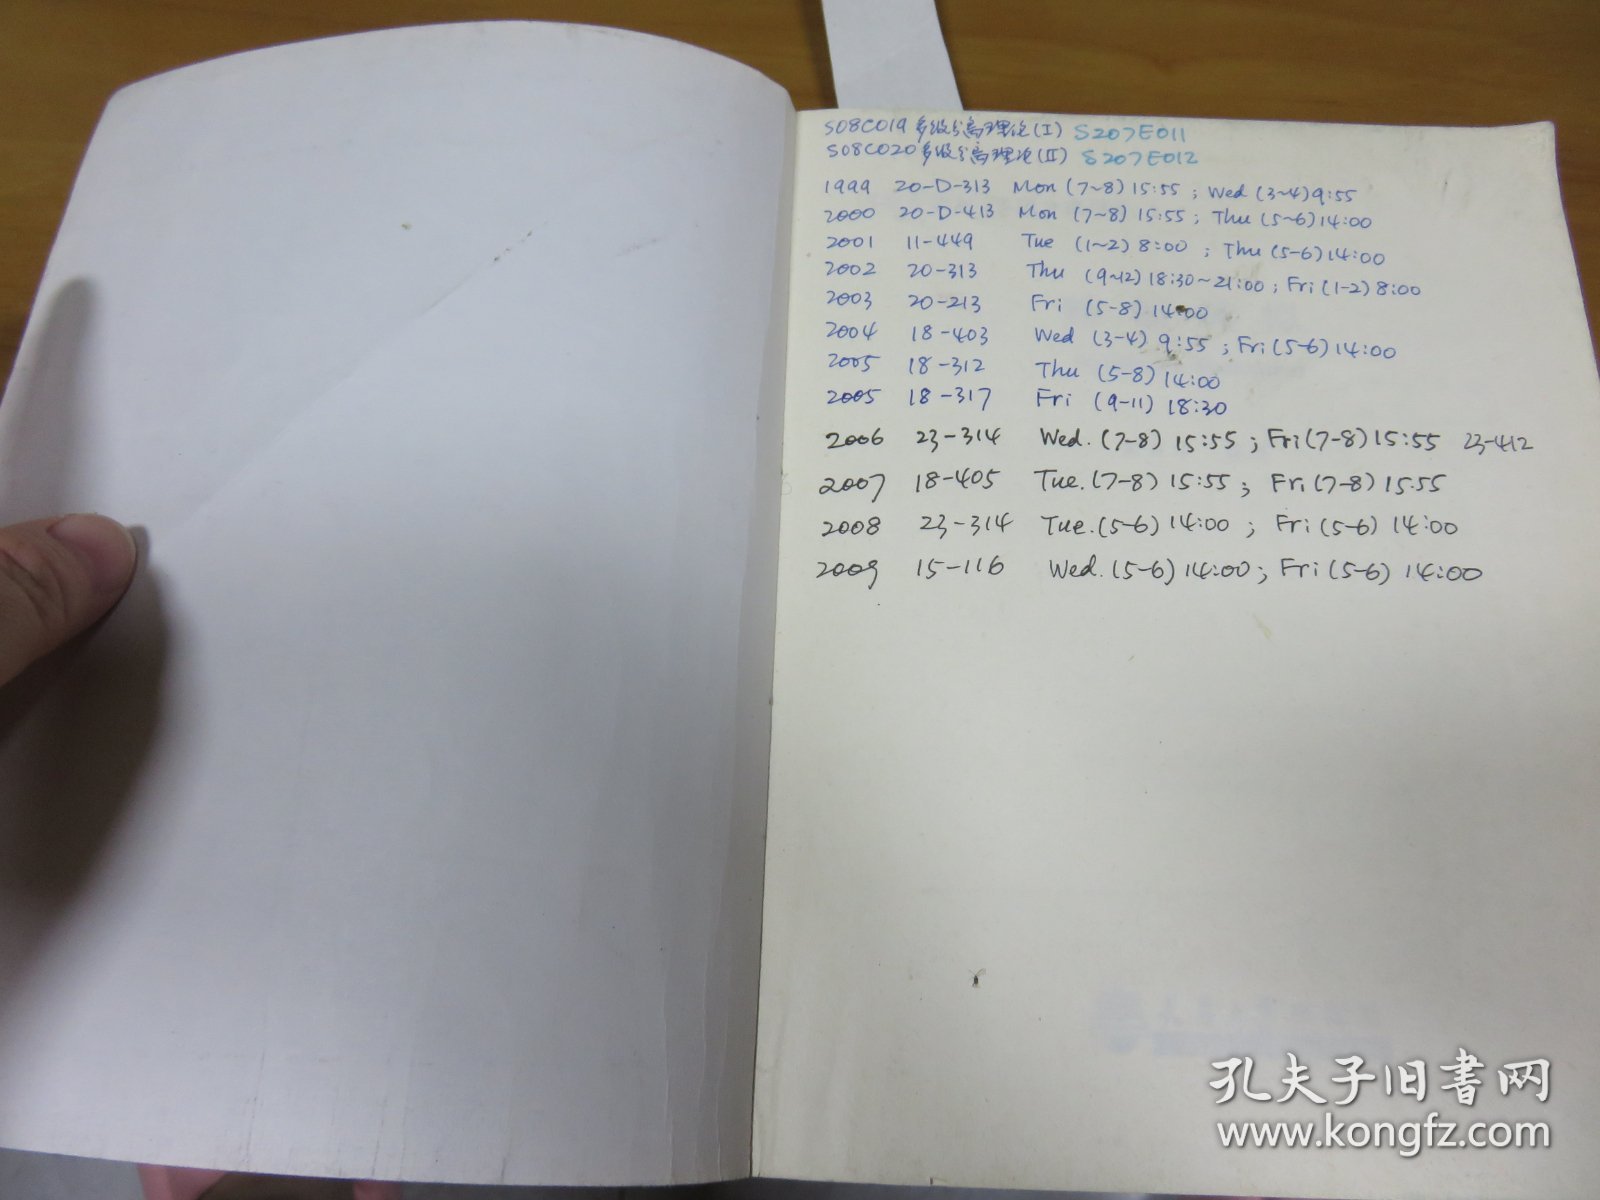 S08C019 多级分离理论(I) S207E011
S08C020 多级分离理论(II) S207E012
1999 20-D-313 Mon (7~8) 15:55 ; Wed (3~4) 9:55
2000 20-D-413 Mon (7~8) 15:55 ; Thu (5~6) 14:00
2001 11-449 Tue (1~2) 8:00 ; Thu (5-6) 14:00
2002 20-313 Thu (9~12) 18:30~21:00 ; Fri (1-2) 8:00
2003 20-213 Fri (5-8) 14:00
2004 18-403 Wed (3-4) 9:55 ; Fri (5-6) 14:00
2005 18-312 Thu (5-8) 14:00
2005 18-317 Fri (9-11) 18:30
2006 23-314 Wed. (7-8) 15:55 ; Fri (7-8) 15:55 23-412
2007 18-405 Tue. (7-8) 15:55 ; Fri (7-8) 15:55
2008 23-314 Tue. (5-6) 14:00 ; Fri (5-6) 14:00
2009 15-116 Wed. (5-6) 14:00 ; Fri (5-6) 14:00
孔夫子旧書网
www.kongfz.com